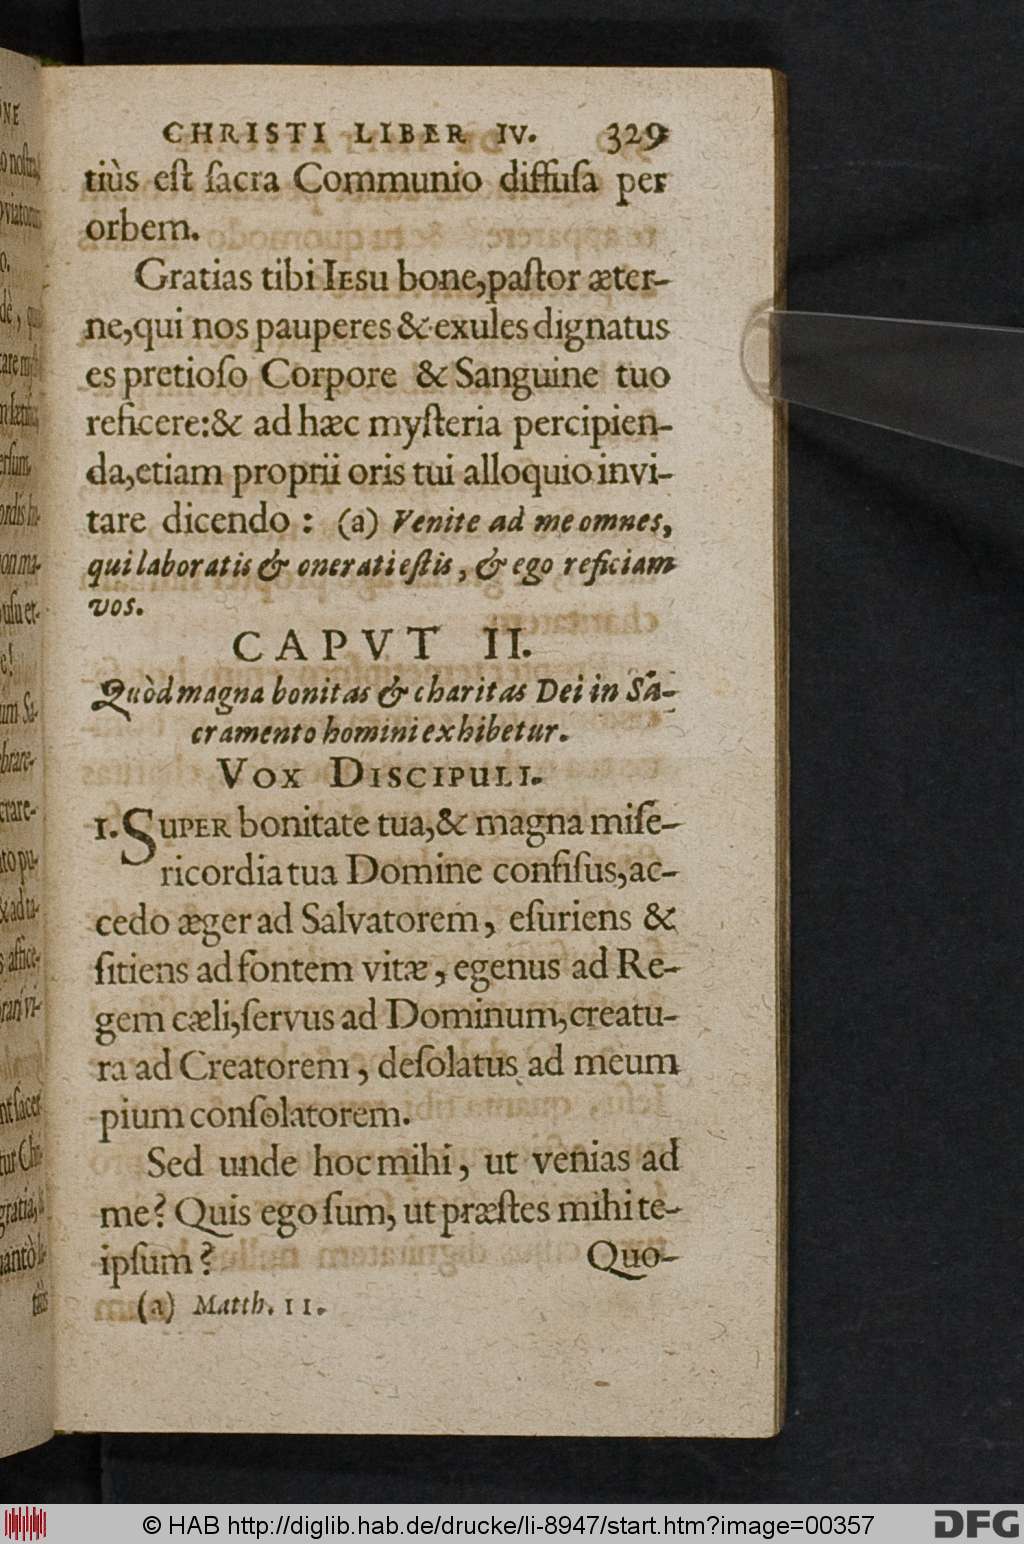 CHRISTI LIBER IV. 329
tiùs eſt ſacra Communio diffuſa per
orbem.
Gratias tibi Iesu bone, paſtor æter-
ne, qui nos pauperes & exules dignatus
es pretioſo Corpore & Sanguine tuo
reficere: & ad hæc myſteria percipien-
da, etiam proprii oris tui alloquio invi-
tare dicendo : (a) Venite ad me omnes,
qui laboratis & onerati eſtis, & ego reficiam
vos.
CAPVT II.
Quòd magna bonitas & charitas Dei in Sa-
cramento homini exhibetur.
VOX DISCIPULI.
1. SUPER bonitate tua, & magna miſe-
ricordia tua Domine confiſus, ac-
cedo æger ad Salvatorem, eſuriens &
ſitiens ad fontem vitæ, egenus ad Re-
gem cæli, ſervus ad Dominum, creatu-
ra ad Creatorem, deſolatus ad meum
pium conſolatorem.
Sed unde hoc mihi, ut venias ad
me? Quis ego ſum, ut præſtes mihi te-
ipſum? Quo-
(a) Matth. 11.
© HAB http://diglib.hab.de/drucke/li-8947/start.htm?image=00357
DFG